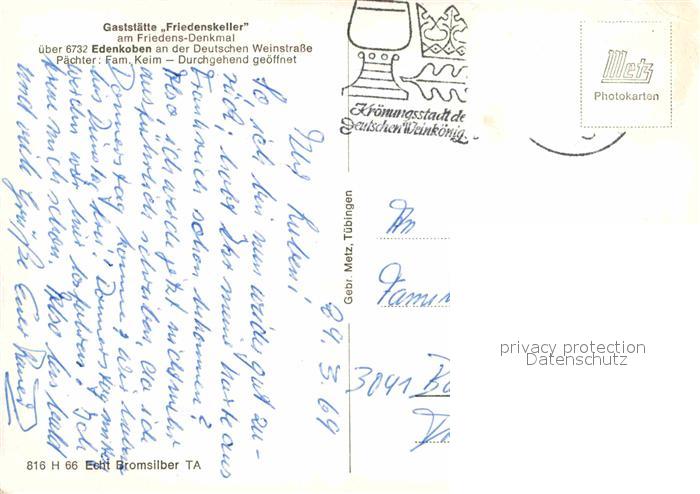 Gaststätte „Friedenskeller"
am Friedens-Denkmal
über 6732 Edenkoben an der Deutschen Weinstraße
Pächter: Fam. Keim — Durchgehend geöffnet
29.3.69
Ihr Lieben!
So ich bin nun wieder gut zu-
rück, habt Ihr meine Karte aus
Frankreich schon bekommen?
Also, ich werde jetzt nicht mehr
ausführlich schreiben, da ich
Donnerstag komme, wir haben
bis Dienstag frei! Donnerstag
werden wir hier losfahren! Ich
freue mich schon. Also bis bald
und viele Grüße Euer
816 H 66 Echt Bromsilber TA
Gebr. Metz, Tübingen
Krönungsstadt de
Deutschen Weinkönig
Metz
Photokarten
An
Fami
3041
privacy protection
Datenschutz